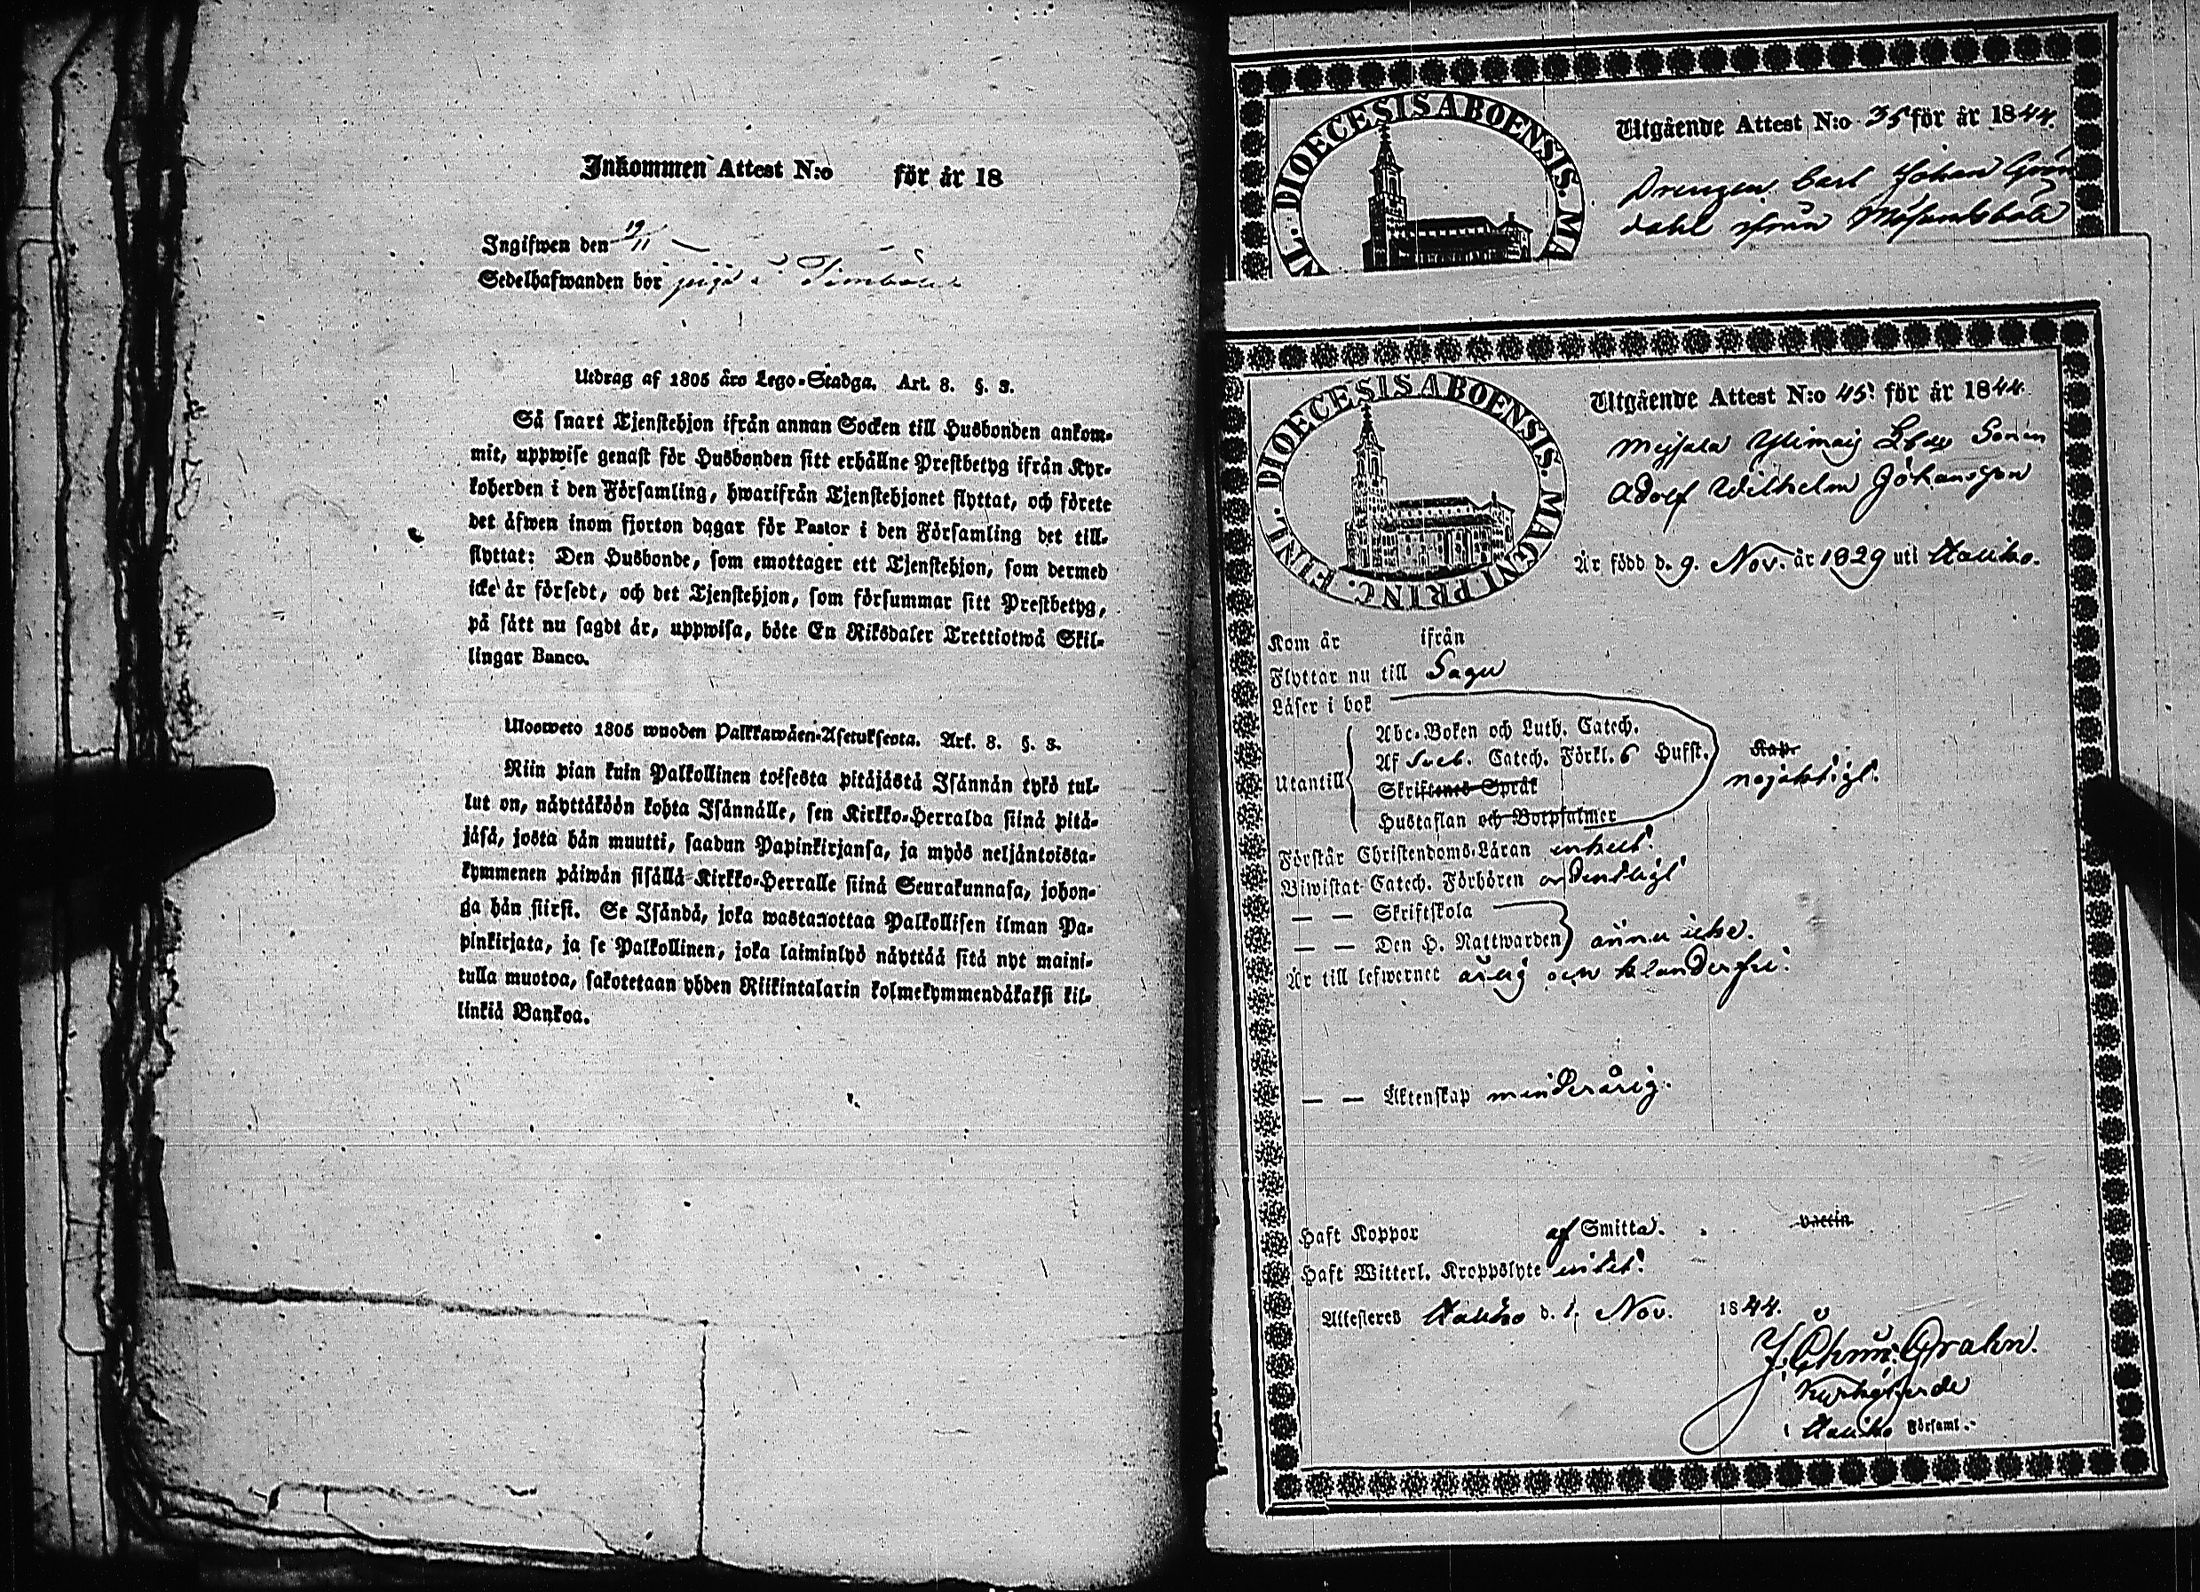 Inkommen Attest N:o för år 18
Ingifwen den 19/11
Sedelhafwanden bor piga i
Utdrag af 1805 åro Lego-Stadga. Art. 8. §. 3.
Så snart Tjenstehjon ifrån annan Socken till Husbonden ankom-
mit, uppwise genast för Husbonden sitt erhållne Prestbetyg ifrån Kyr-
koherden i den Församling, hwarifrån Tjenstehjonet flyttat, och förete
det äfwen inom fjorton dagar för Pastor i den Församling det till-
flyttat: Den Husbonde, som emottager ett Tjenstehjon, som dermed
icke är försedt, och det Tjenstehjon, som försummar sitt Prestbetyg,
på sätt nu sagdt är, uppwisa, böte En Riksdaler Trettiotwå Skil-
lingar Banco.
Ulosweto 1805 wuoden Palkkawäen-Asetuksesta. Art. 8. §. 3.
Niin pian kuin Palkollinen toisesta pitäjästä Isännän tykö tul-
lut on, näyttäköön kohta Isännälle, sen Kirkko-Herralda siinä pitä-
jäsä, josta hän muutti, saadun Papinkirjansa, ja myös neljäntoista-
kymmenen päiwän sisällä Kirkko-Herralle siinä Seurakunnasa, johon-
ga hän siirsi. Se Isändä, joka wastanottaa Palkollisen ilman Pa-
pinkirjata, ja se Palkollinen, joka laiminlyö näyttää sitä nyt maini-
tulla muotoa, sakotetaan yhden Riikintalarin kolmekymmendäkaksi kil-
linkiä Bankoa.
DIOECESIS ABOENSIS. MA
NL.
Utgående Attest N:o 35 för år 1844.
Drengen Carl Johan Grön
dahl ifrån
DIOECESIS ABOENSIS. MAGNI PRINC. FINL.
Utgående Attest N:o 45. för år 1844
Sonen
Adolf Wilhelm Johansson
Är född d. 9. Nov. år 1829 uti Haliko.
Kom år ifrån
Flyttar nu till Sagu
Läser i bok
Utantill
Abc-Boken och Luth. Catech.
Af Sveb. Catech. Förkl. 6 Hufst.
Skriftenes Språk
Hustaflan och Botpsalmer
Kap.
nöjaktigt.
Förstår Christendoms-Läran enkelt.
Biwistat Catech. Förhören ordentligt
— — Skriftskola
— — Den H. Nattwarden ännu icke.
Är till lefwernet ärlig och klanderfri.
— — Äktenskap minderårig.
Haft Koppor af Smitta. vaccin
Haft Witterl. Kroppslyte intet.
Attesteres Haliko d. 1. Nov. 1844.
J. Öhm: Grahn.
Kyrkoherde
i Haliko Församl.